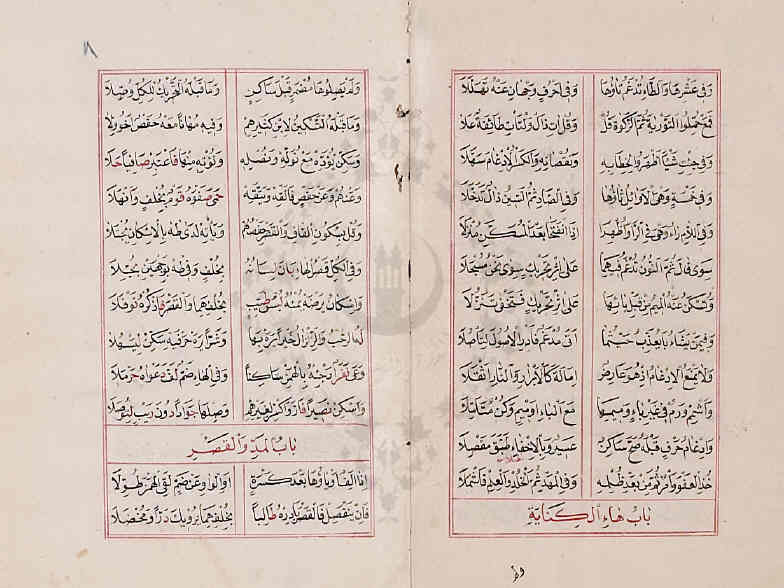 وفي عشرها والطاء تدغم تاؤها وفي احرف وجهان عنه تهللا
فمع حملوا التورية ثم الزكوة قل وقل ات ذال ولتات طائفة علا
وفي جئت شيئا اظهروا لخطابه ونقصانه والكسر الادغام سهلا
وفي خمسة وهي الاوائل ثاؤها وفي الصاد ثم السين ذال تدخلا
وفي اللام راء وهي في الرا واظهرا اذا انفتحا بعد المسكن منزلا
سوى قال ثم النون تدغم فيهما على اثر تحريك سوى نحن مسجلا
وتسكن عنه الميم من قبل بائها على اثر تحريك فتخفى تنزلا
وفي من يشاء با يعذب حيثما اتى مدغم فادر الاصول لتاصلا
ولا يمنع الادغام اذ هو عارض امالة كالابرار والنار اثقلا
واشمم ورم في غير باء وميمها مع الباء او ميم وكن متاملا
وادغام حرف قبله صح ساكن عسير وبالاخفاء طبق مفصلا
خذ العفو وامر ثم من بعد ظلمه وفي المهد ثم الخلد والعلم فاشملا
باب هاء الكناية
٨
ولم يصلوا ها مضمر قبل ساكن وما قبله التحريك للكل وصلا
وما قبله التسكين لابن كثيرهم وفيه مهانا معه حفص اخو ولا
وسكن يؤده مع نوله ونصله ونؤته منها فاعتبر صافيا حلا
وعنهم وعن حفص فالقه ويتقه حمى صفوه قوم بخلف وانهلا
وقل بسكون القاف والقصر حفصهم وياته لدى طه بالاسكان يجتلا
وفي الكل قصر الهاء بان لسانه بخلف وفي طه بوجهين بجلا
واسكان يرضه يمنه لبس طيب بخلفهما والقصر فاذكره نوفلا
له الرحب والزلزال خيرا يره بها وشرا يره حرفيه سكن ليسهلا
وعى نفر ارجئه بالهمز ساكنا وفي الهاء ضم لف دعواه حرملا
واسكن نصيرا فاز واكسر لغيرهم وصلها جوادا دون ريب لتوصلا
باب المد والقصر
اذا الف او ياؤها بعد كسرة او الواو عن ضم لقي الهمز طولا
فان ينفصل فالقصر بادره طالبا بخلفهما يرويك درا ومخضلا